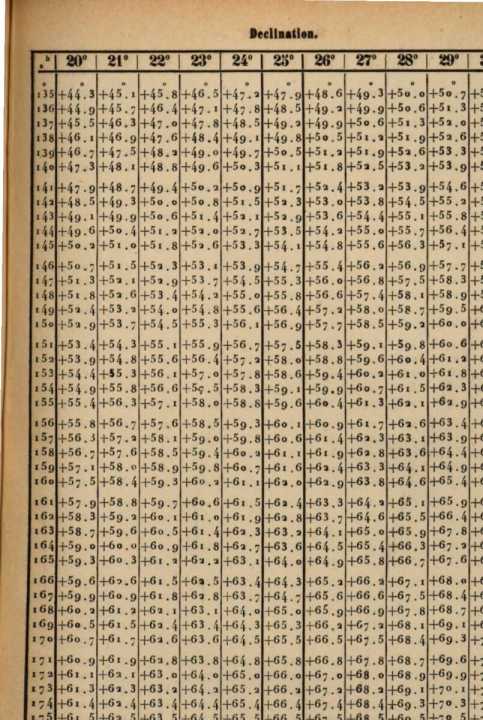 Declination.
h 20° 21° 22° 23° 24° 25° 26° 27° 28° 29°
° ° ° ° ° ° ° ° ° ° °
135 +44.3 +45.1 +45.8 +46.5 +47.2 +47.9 +48.6 +49.3 +50.0 +50.7
136 +44.9 +45.7 +46.4 +47.1 +47.8 +48.5 +49.2 +49.9 +50.6 +51.3
137 +45.5 +46.3 +47.0 +47.8 +48.5 +49.2 +49.9 +50.6 +51.3 +52.0
138 +46.1 +46.9 +47.6 +48.4 +49.1 +49.8 +50.5 +51.2 +51.9 +52.6
139 +46.7 +47.5 +48.2 +49.0 +49.7 +50.5 +51.2 +51.9 +52.6 +53.3
140 +47.3 +48.1 +48.8 +49.6 +50.3 +51.1 +51.8 +52.5 +53.2 +53.9
141 +47.9 +48.7 +49.4 +50.2 +50.9 +51.7 +52.4 +53.2 +53.9 +54.6
142 +48.5 +49.3 +50.0 +50.8 +51.5 +52.3 +53.0 +53.8 +54.5 +55.2
143 +49.1 +49.9 +50.6 +51.4 +52.1 +52.9 +53.6 +54.4 +55.1 +55.8
144 +49.6 +50.4 +51.2 +52.0 +52.7 +53.5 +54.2 +55.0 +55.7 +56.4
145 +50.2 +51.0 +51.8 +52.6 +53.3 +54.1 +54.8 +55.6 +56.3 +57.1
146 +50.7 +51.5 +52.3 +53.1 +53.9 +54.7 +55.4 +56.2 +56.9 +57.7
147 +51.3 +52.1 +52.9 +53.7 +54.5 +55.3 +56.0 +56.8 +57.5 +58.3
148 +51.8 +52.6 +53.4 +54.2 +55.0 +55.8 +56.6 +57.4 +58.1 +58.9
149 +52.4 +53.2 +54.0 +54.8 +55.6 +56.4 +57.2 +58.0 +58.7 +59.5
150 +52.9 +53.7 +54.5 +55.3 +56.1 +56.9 +57.7 +58.5 +59.2 +60.0
151 +53.4 +54.3 +55.1 +55.9 +56.7 +57.5 +58.3 +59.1 +59.8 +60.6
152 +53.9 +54.8 +55.6 +56.4 +57.2 +58.0 +58.8 +59.6 +60.4 +61.2
153 +54.4 +55.3 +56.1 +57.0 +57.8 +58.6 +59.4 +60.2 +61.0 +61.8
154 +54.9 +55.8 +56.6 +57.5 +58.3 +59.1 +59.9 +60.7 +61.5 +62.3
155 +55.4 +56.3 +57.1 +58.0 +58.8 +59.6 +60.4 +61.3 +62.1 +62.9
156 +55.8 +56.7 +57.6 +58.5 +59.3 +60.1 +60.9 +61.7 +62.6 +63.4
157 +56.3 +57.2 +58.1 +59.0 +59.8 +60.6 +61.4 +62.3 +63.1 +63.9
158 +56.7 +57.6 +58.5 +59.4 +60.2 +61.1 +61.9 +62.8 +63.6 +64.4
159 +57.1 +58.0 +58.9 +59.8 +60.7 +61.6 +62.4 +63.3 +64.1 +64.9
160 +57.5 +58.4 +59.3 +60.2 +61.1 +62.0 +62.9 +63.8 +64.6 +65.4
161 +57.9 +58.8 +59.7 +60.6 +61.5 +62.4 +63.3 +64.2 +65.1 +65.9
162 +58.3 +59.2 +60.1 +61.0 +61.9 +62.8 +63.7 +64.6 +65.5 +66.4
163 +58.7 +59.6 +60.5 +61.4 +62.3 +63.2 +64.1 +65.0 +65.9 +67.8
164 +59.0 +60.0 +60.9 +61.8 +62.7 +63.6 +64.5 +65.4 +66.3 +67.2
165 +59.3 +60.3 +61.2 +62.2 +63.1 +64.0 +64.9 +65.8 +66.7 +67.6
166 +59.6 +60.6 +61.5 +62.5 +63.4 +64.3 +65.2 +66.2 +67.1 +68.0
167 +59.9 +60.9 +61.8 +62.8 +63.7 +64.7 +65.6 +66.6 +67.5 +68.4
168 +60.2 +61.2 +62.1 +63.1 +64.0 +65.0 +65.9 +66.9 +67.8 +68.7
169 +60.5 +61.5 +62.4 +63.4 +64.3 +65.3 +66.2 +67.2 +68.1 +69.1
170 +60.7 +61.7 +62.6 +63.6 +64.5 +65.5 +66.5 +67.5 +68.4 +69.3
171 +60.9 +61.9 +62.8 +63.8 +64.8 +65.8 +66.8 +67.8 +68.7 +69.6
172 +61.1 +62.1 +63.0 +64.0 +65.0 +66.0 +67.0 +68.0 +68.9 +69.9
173 +61.3 +62.3 +63.2 +64.2 +65.2 +66.2 +67.2 +68.2 +69.1 +70.1
174 +61.4 +62.4 +63.4 +64.4 +65.4 +66.4 +67.4 +68.4 +69.3 +70.3